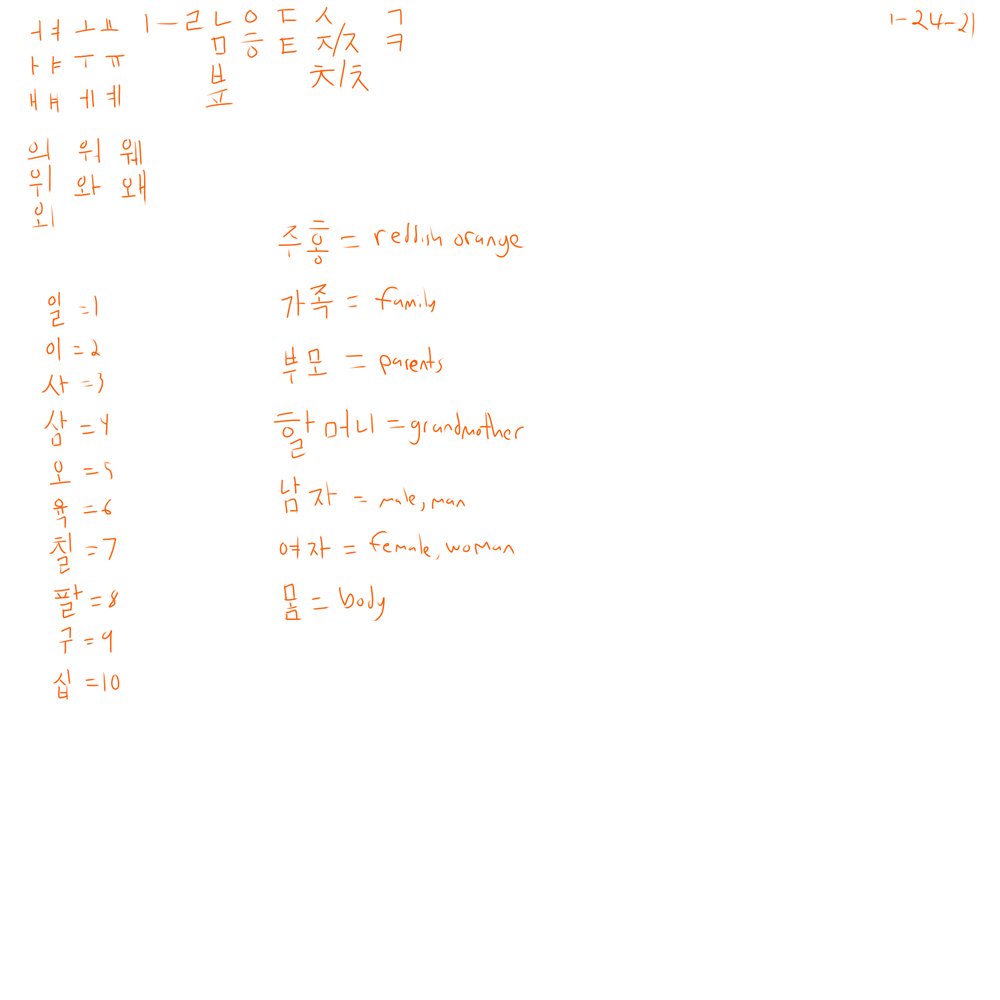 ㅓㅕ ㅗㅛ ㅣㅡ ㄹ ㄴ ㅇ ㄷ ㅅ ㄱ 1-24-21
ㅏㅑ ㅜㅠ ㅁ ㅎ ㅌ ㅈ/ㅈ ㅋ
ㅐㅒ ㅔㅖ ㅂ ㅊ/ㅊ
ㅍ
의 워 웨
위 와 왜
외
주홍 = reddish orange
일 =1
가족 = family
이 =2
부모 = parents
사 =3
삼 =4
할머니 = grandmother
오 =5
남자 = male, man
욕 =6
칠 =7
여자 = female, woman
팔 =8
몸 = body
구 =9
십 =10